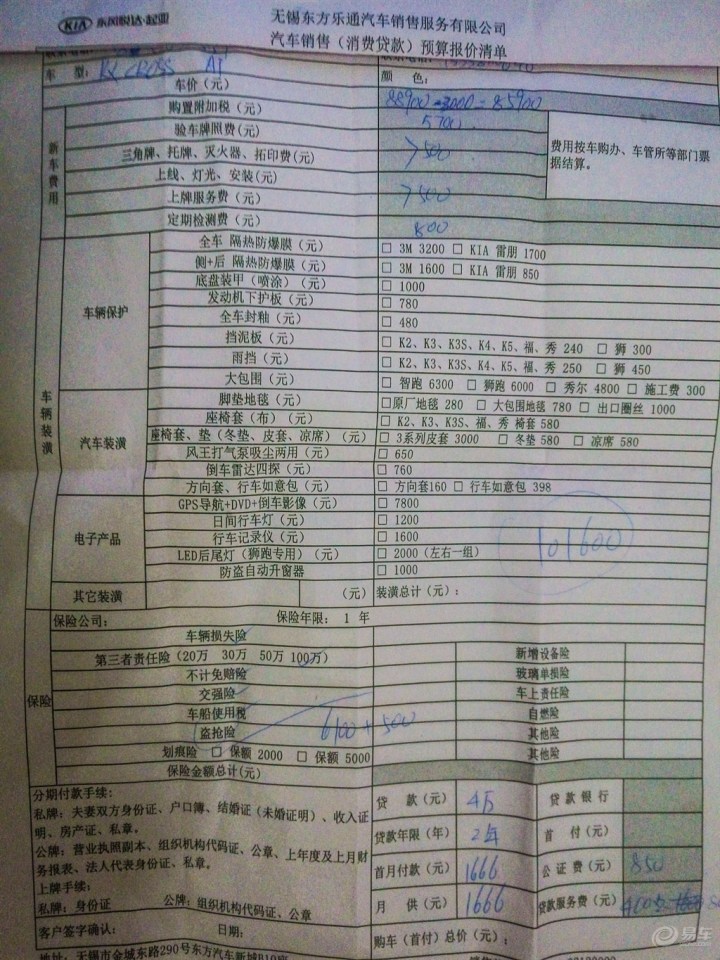 KIA 东风悦达·起亚
无锡东方乐通汽车销售服务有限公司
汽车销售（消费贷款）预算报价清单
车 型： CROSS AT 颜 色：
新车费用
车价（元） 88900-3000=85900
购置附加税（元） 5700
验车牌照费（元）
三角牌、托牌、灭火器、拓印费(元) 500
上线、灯光、安装(元)
上牌服务费（元） 500
定期检测费（元） 800
费用按车购办、车管所等部门票据结算。
车辆装潢
车辆保护
全车 隔热防爆膜（元） □ 3M 3200 □ KIA 雷朋 1700
侧+后 隔热防爆膜（元） □ 3M 1600 □ KIA 雷朋 850
底盘装甲（喷涂）（元） □ 1000
发动机下护板（元） □ 780
全车封釉（元） □ 480
挡泥板（元） □ K2、K3、K3S、K4、K5、福、秀 240 □ 狮 300
雨挡（元） □ K2、K3、K3S、K4、K5、福、秀 250 □ 狮 450
大包围（元） □ 智跑 6300 □ 狮跑 6000 □ 秀尔 4800 □ 施工费 300
汽车装潢
脚垫地毯（元） □原厂地毯 280 □ 大包围地毯 780 □ 出口圈丝 1000
座椅套（布）（元） □ K2、K3、K3S、福、秀 椅套 580
座椅套、垫（冬垫、皮套、凉席）（元） □ 3系列皮套 3000 □ 冬垫 580 □ 凉席 580
风王打气泵吸尘两用（元） □ 650
倒车雷达四探（元） □ 760
方向套、行车如意包（元） □ 方向套160 □ 行车如意包 398
电子产品
GPS导航+DVD+倒车影像（元） □ 7800
日间行车灯（元） □ 1200
行车记录仪（元） □ 1600
LED后尾灯（狮跑专用）（元） □ 2000（左右一组）
防盗自动升窗器 □ 1000
101600
其它装潢 （元） 装潢总计（元）：
保险
保险公司： 保险年限： 1 年
车辆损失险
第三者责任险（20万 30万 50万 100万） 新增设备险
不计免赔险 玻璃单损险
交强险 车上责任险
车船使用税 自燃险
盗抢险 6100+500 其他险
划痕险 □ 保额 2000 □ 保额 5000 其他险
保险金额总计(元)
分期付款手续：
私牌：夫妻双方身份证、户口簿、结婚证（未婚证明）、收入证
明、房产证、私章。
公牌：营业执照副本、组织机构代码证、公章、上年度及上月财
务报表、法人代表身份证、私章。
上牌手续：
私牌：身份证 公牌：组织机构代码证、公章
贷 款（元） 4万 贷 款 银 行
贷款年限（年） 2年 首 付（元）
首月付款（元） 1666 公 证 费（元） 850
月 供（元） 1666 贷款服务费（元）
客户签字确认： 日期： 购车（首付）总价（元）：
地址：无锡市金城东路290号东方汽车新城B10座
易车